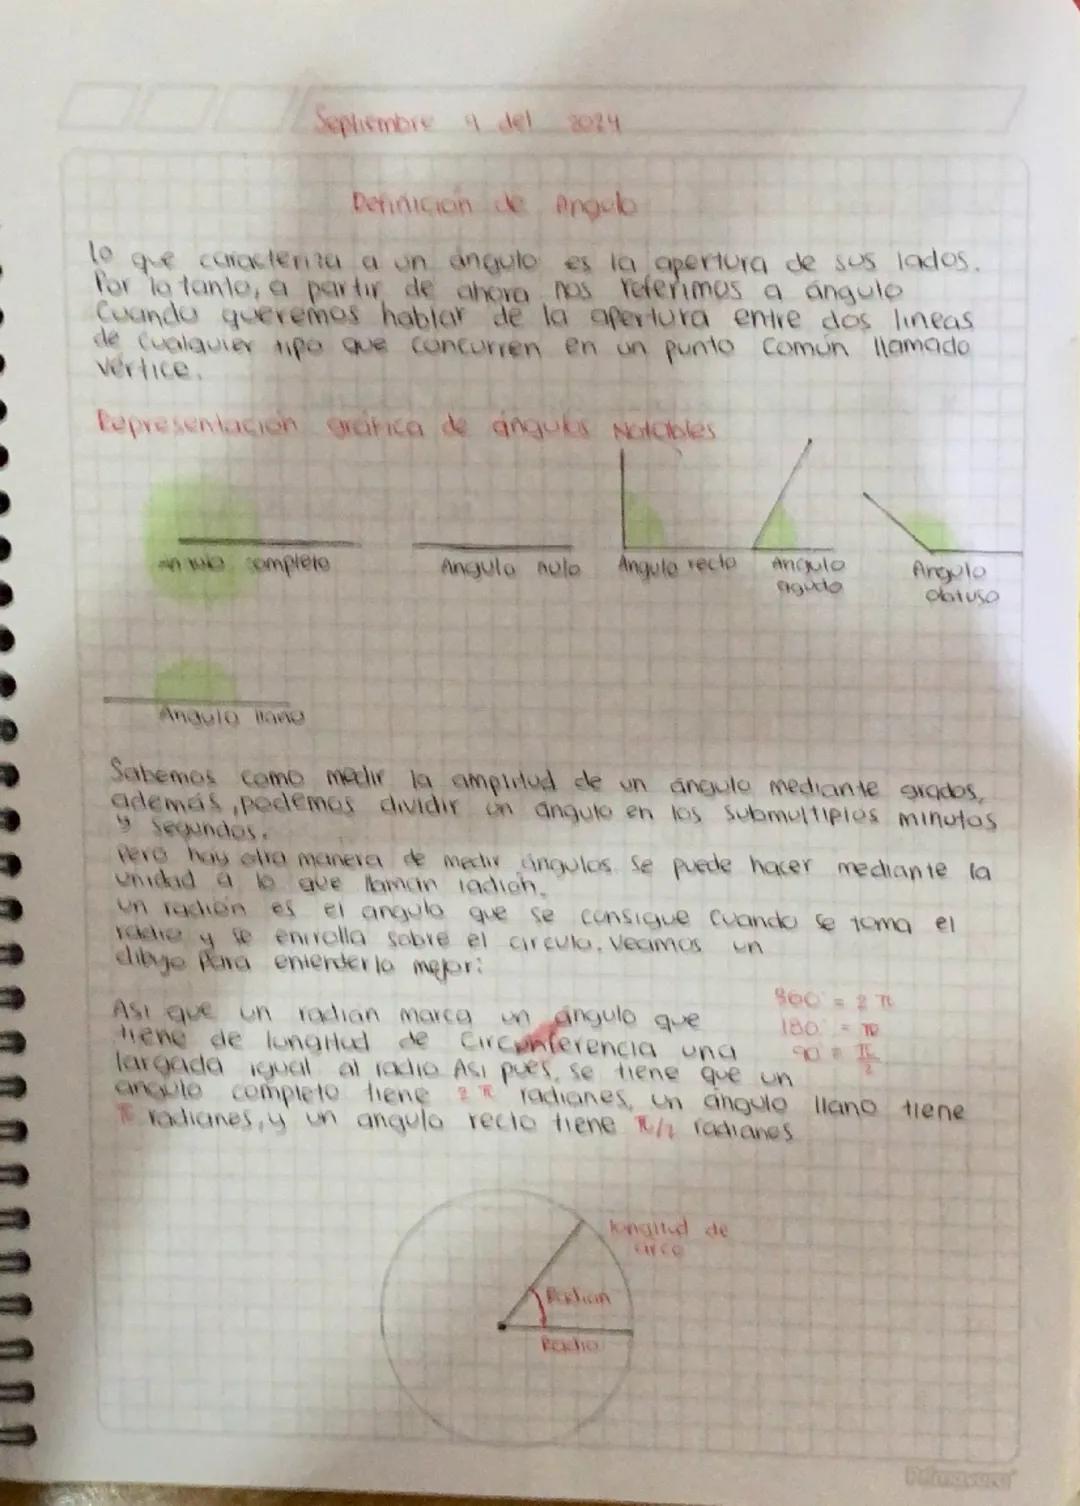 Septiembre 9 del 2024
Definición de Angulo
lo que caracteriza a un ángulo es la apertura de sus lados.
Por lo tanto, a partir de ahora nos referimos a ángulo
Cuando queremos hablar de la apertura entre dos lineas
de cualquier tipo que concurren en un punto común llamado
vértice.
Representación gráfica de ángulos Notables
Angulo completo
Angulo nulo
Angulo recto
Angulo
agudo
Angulo
obtuso
Angulo llano
Sabemos como medir la amplitud de un ángulo mediante grados,
además, podemos dividir un ángulo en los submultiplos minutos
y segundos.
Pero hay otra manera de medir ángulos. Se puede hacer mediante la
unidad a lo que llaman radián.
un radián es el angulo que se consigue cuando se toma el
radio y se enrolla sobre el circulo. Veamos un
dibujo para entenderlo mejor:
360° = 2 π
180° = π
90° = π/2
Asi que un radián marca un ángulo que
tiene de longitud de circunferencia una
largada igual al radio Asi pues, se tiene que un
angulo completo tiene 2 π radianes, un ángulo llano tiene
π radianes, y un angulo recto tiene π/2 radianes
longitud de
arco
Radian
Radio
Primavera